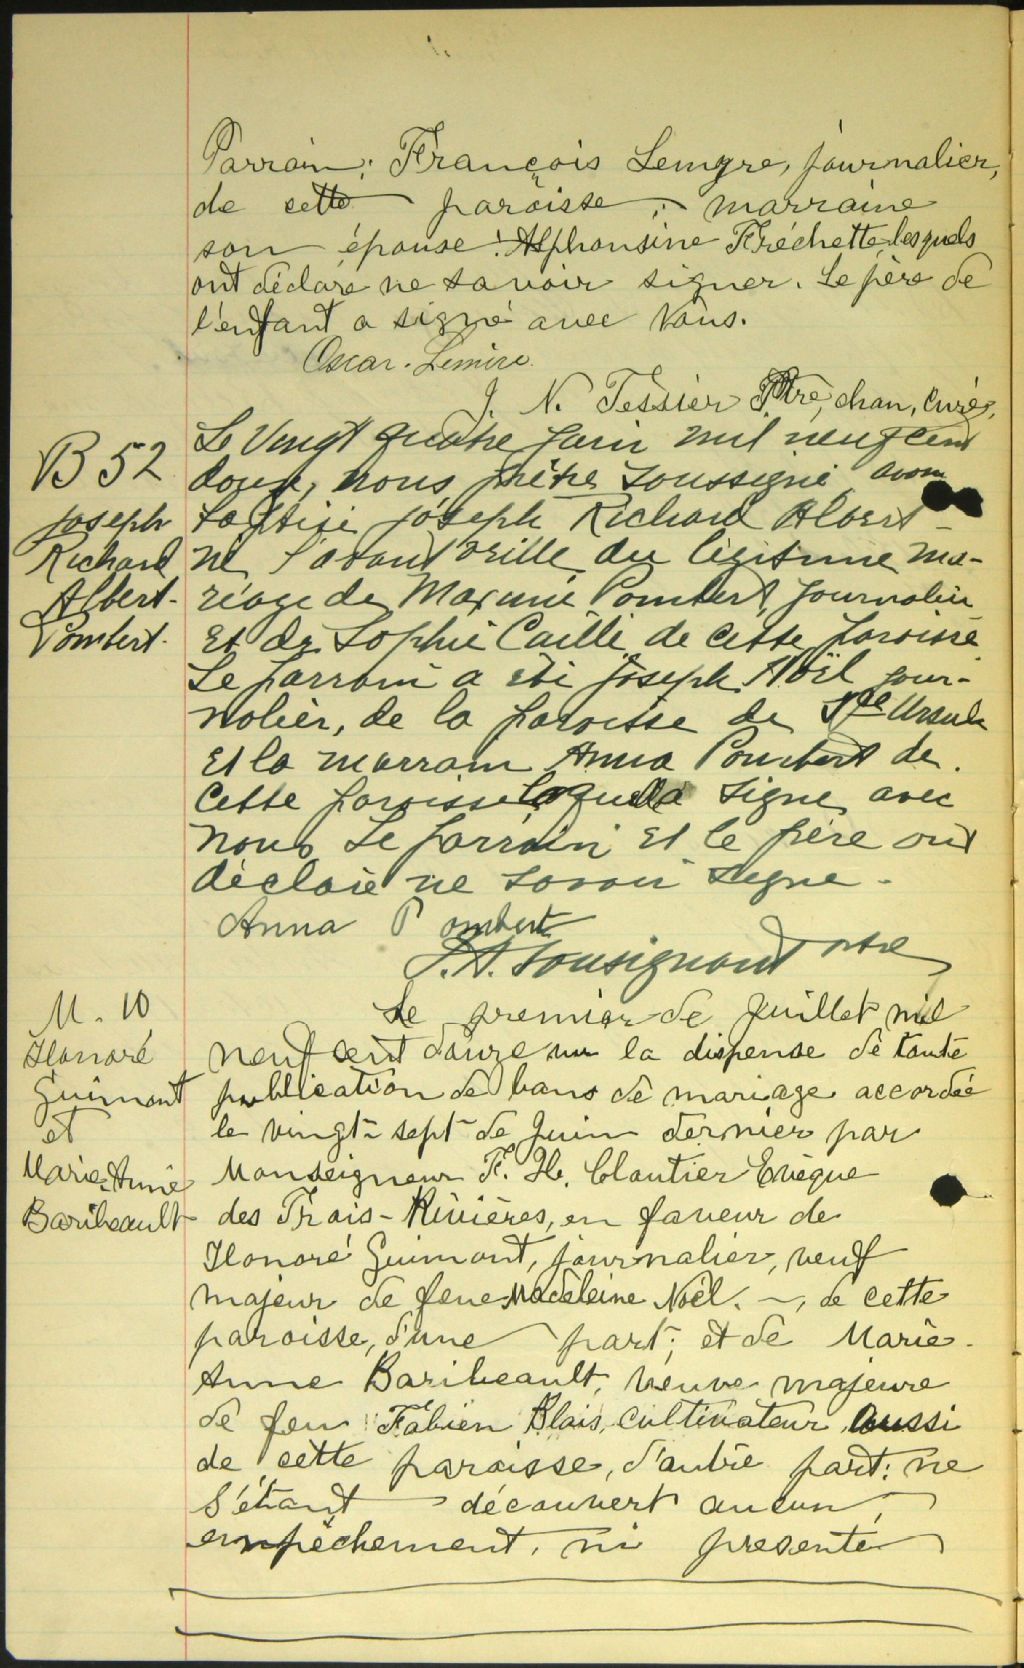 Parrain: François Lemyre, journalier,
de cette paroisse; marraine
son épouse: Alphonsine Fréchette, lesquels
ont déclaré ne savoir signer. Le père de
l'enfant a signé avec Nous.
Oscar. Lemire
J. N. Tessier Ptre, chan, curé,
B 52
Joseph
Richard
Albert
Pombert.
Le Vingt quatre juin mil neuf cent
douze, nous prêtre soussigné avons
baptisé Joseph Richard Albert
né l'avant veille du légitime ma-
riage de Maxime Pombert, journalier
et de Sophie Caillé de cette paroisse
Le parrain a été Joseph Noël jour-
nalier, de la paroisse de Ste Ursule
et la marraine Anna Pombert de
cette paroisse laquelle signe avec
nous. Le parrain et le père ont
déclaré ne savoir signer.
Anna Pombert
Tousignant ptre
M. 10
Honoré
Guimont
et
Marie-Anne
Baribeault
Le premier de juillet mil
neuf cent douze vu la dispense de toute
publication de bans de mariage accordée
le vingt-sept de Juin dernier par
Monseigneur F. X. Cloutier Evèque
des Trois-Rivières, en faveur de
Honoré Guimont, journalier, veuf
majeur de feue Madeleine Noël. ~, de cette
paroisse, d'une part; et de Marie-
Anne Baribeault, veuve majeure
de feu Fabien Blais, cultivateur aussi
de cette paroisse, d'autre part: ne
s'étant découvert aucun
empêchement, ni presenté